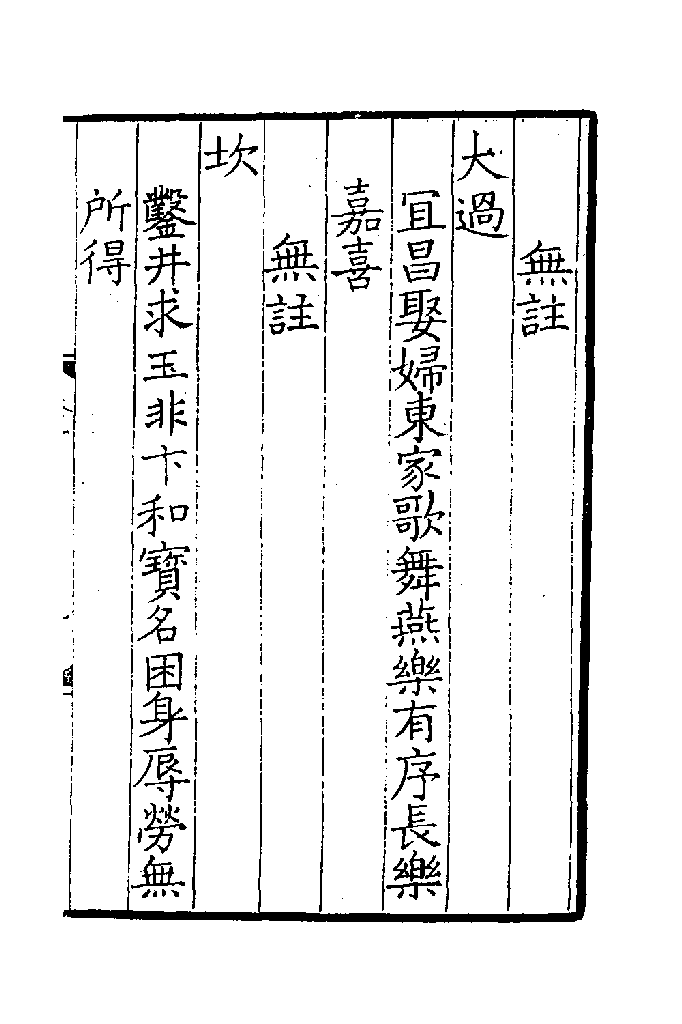 無註
大過
冝昌娶婦東家歌舞燕樂有序長樂
嘉喜
無註
坎
鑿井求玉非卞和寶名困身辱勞無
所得